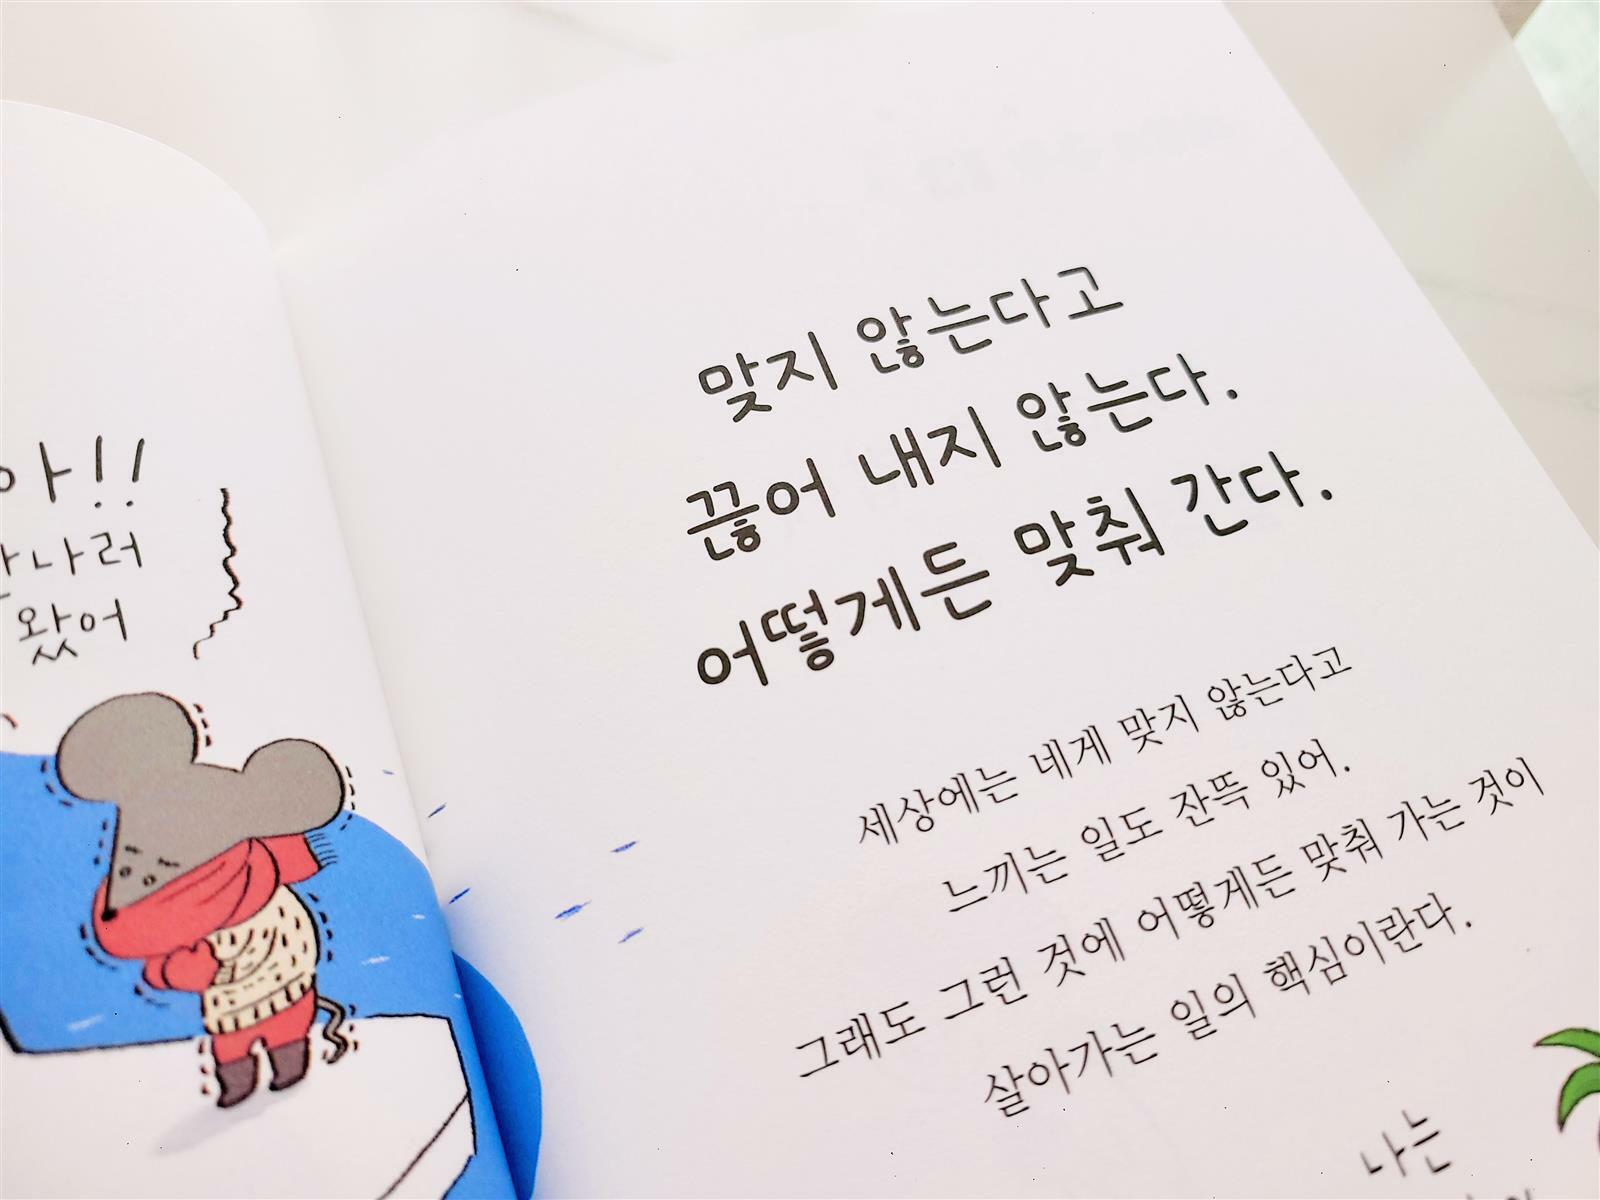 왔어
맞지 않는다고
끊어 내지 않는다.
어떻게든 맞춰 간다.
세상에는 네게 맞지 않는다고
느끼는 일도 잔뜩 있어.
그래도 그런 것에 어떻게든 맞춰 가는 것이
살아가는 일의 핵심이란다.
나는